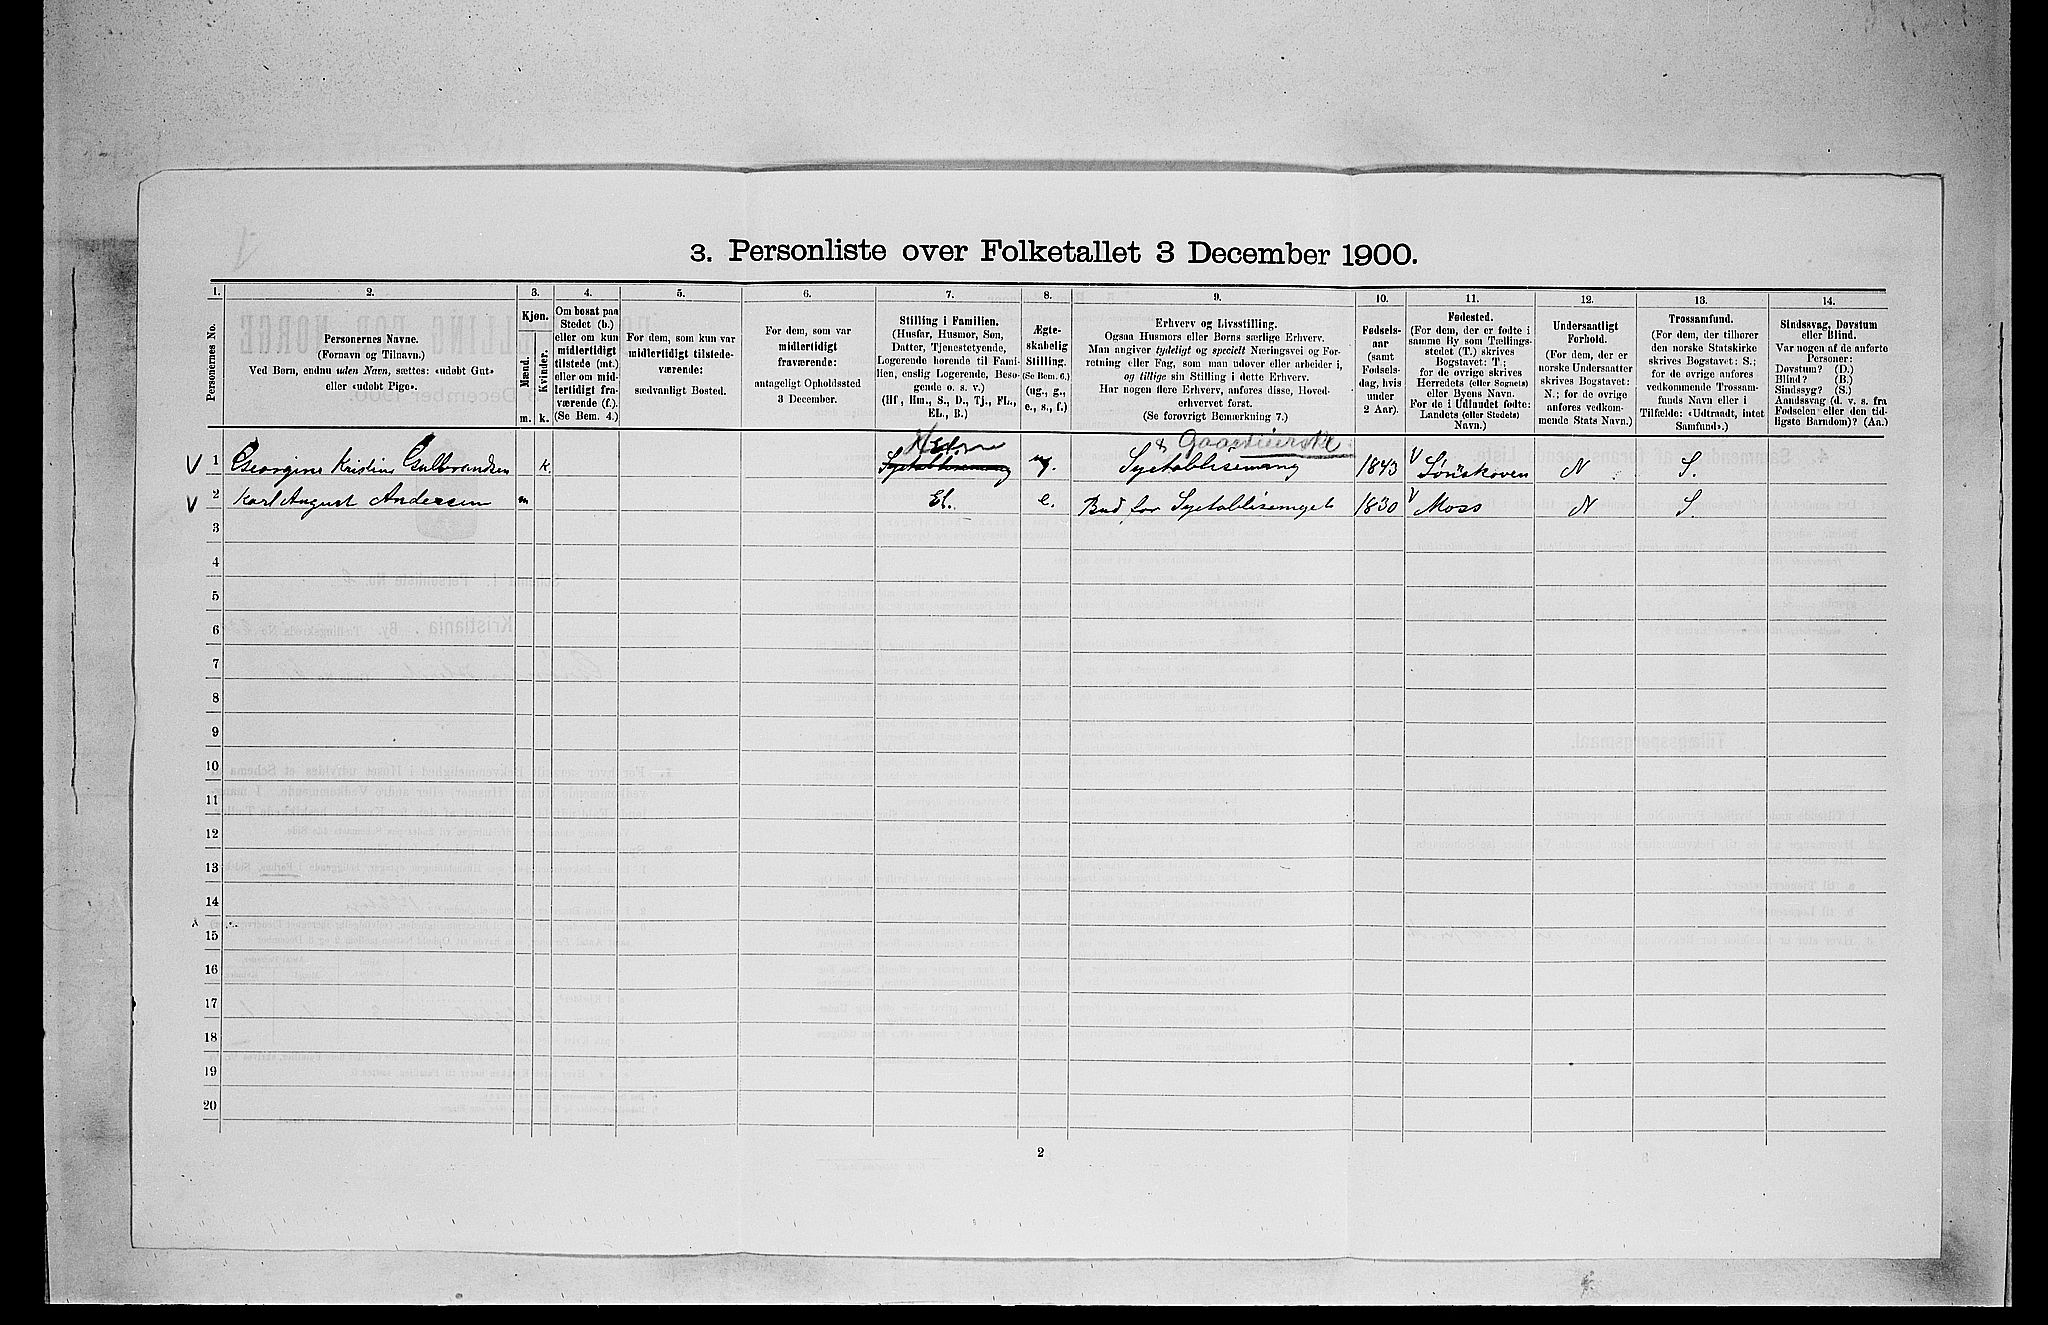 3. Personliste over Folketallet 3 December 1900.
1. 2. 3. 4. 5. 6. 7. 8. 9. 10. 11. 12. 13. 14.
Personernes No.
Personernes Navne.
(Fornavn og Tilnavn.)
Ved Børn, endnu uden Navn, sættes: «udøbt Gut»
eller «udøbt Pige».
Kjøn.
Mænd.
Kvinder.
m. k.
Om bosat paa
Stedet (b.)
eller om kun
midlertidigt
tilstede (mt.)
eller om mid-
lertidigt fra-
værende (f.).
(Se Bem. 4.)
For dem, som kun var
midlertidigt tilstede-
værende:
sædvanligt Bosted.
For dem, som var
midlertidigt
fraværende:
antageligt Opholdssted
3 December.
Stilling i Familien.
(Husfar, Husmor, Søn,
Datter, Tjenestetyende,
Logerende hørende til Fami-
lien, enslig Logerende, Besø-
gende o. s. v.)
(Hf, Hm., S., D., Tj., FL.,
EL., B.)
Ægte-
skabelig
Stilling.
(Se Bem. 6.)
(ug., g.,
e., s., f.)
Erhverv og Livsstilling.
Ogsaa Husmors eller Børns særlige Erhverv.
Man angiver tydeligt og specielt Næringsvei og For-
retning eller Fag, som man udøver eller arbeider i,
og tillige sin Stilling i dette Erhverv.
Har nogen flere Erhverv, anføres disse, Hoved-
erhvervet først.
(Se forøvrigt Bemærkning 7.)
Fødsels-
aar
(samt
Fødsels-
dag, hvis
under
2 Aar).
Fødested.
(For dem, der er fødte i
samme By som Tællings-
stedet (T.) skrives
Bogstavet: T;
for de øvrige skrives
Herredets (eller Sognets)
eller Byens Navn.
For de i Udlandet fødte:
Landets (eller Stedets)
Navn.)
Undersaatligt
Forhold.
(For dem, der er
norske Undersaatter
skrives Bogstavet:
N.; for de øvrige
anføres vedkom-
mende Stats Navn.)
Trossamfund.
(For dem, der tilhører
den norske Statskirke
skrives Bogstavet: S.;
for de øvrige anføres
vedkommende Trossam-
funds Navn eller i
Tilfælde: «Udtraadt, intet
Samfund».)
Sindssvag, Døvstum
eller Blind.
Var nogen af de anførte
Personer:
Døvstum? (D.)
Blind? (B.)
Sindssyg? (S.)
Aandssvag (d. v. s. fra
Fødselen eller den tid-
ligste Barndom)? (Aa.)
V 1 Georgine Kristine Gulbrandsen k. Syetablisemang ug. Syetablisemang 1843 V N S.
V 2 Karl August Andersen m El. e. Bud for Syetablisemget 1830 V Moss N S.
3
4
5
6
7
8
9
10
11
12
13
14
15
16
17
18
19
20
2